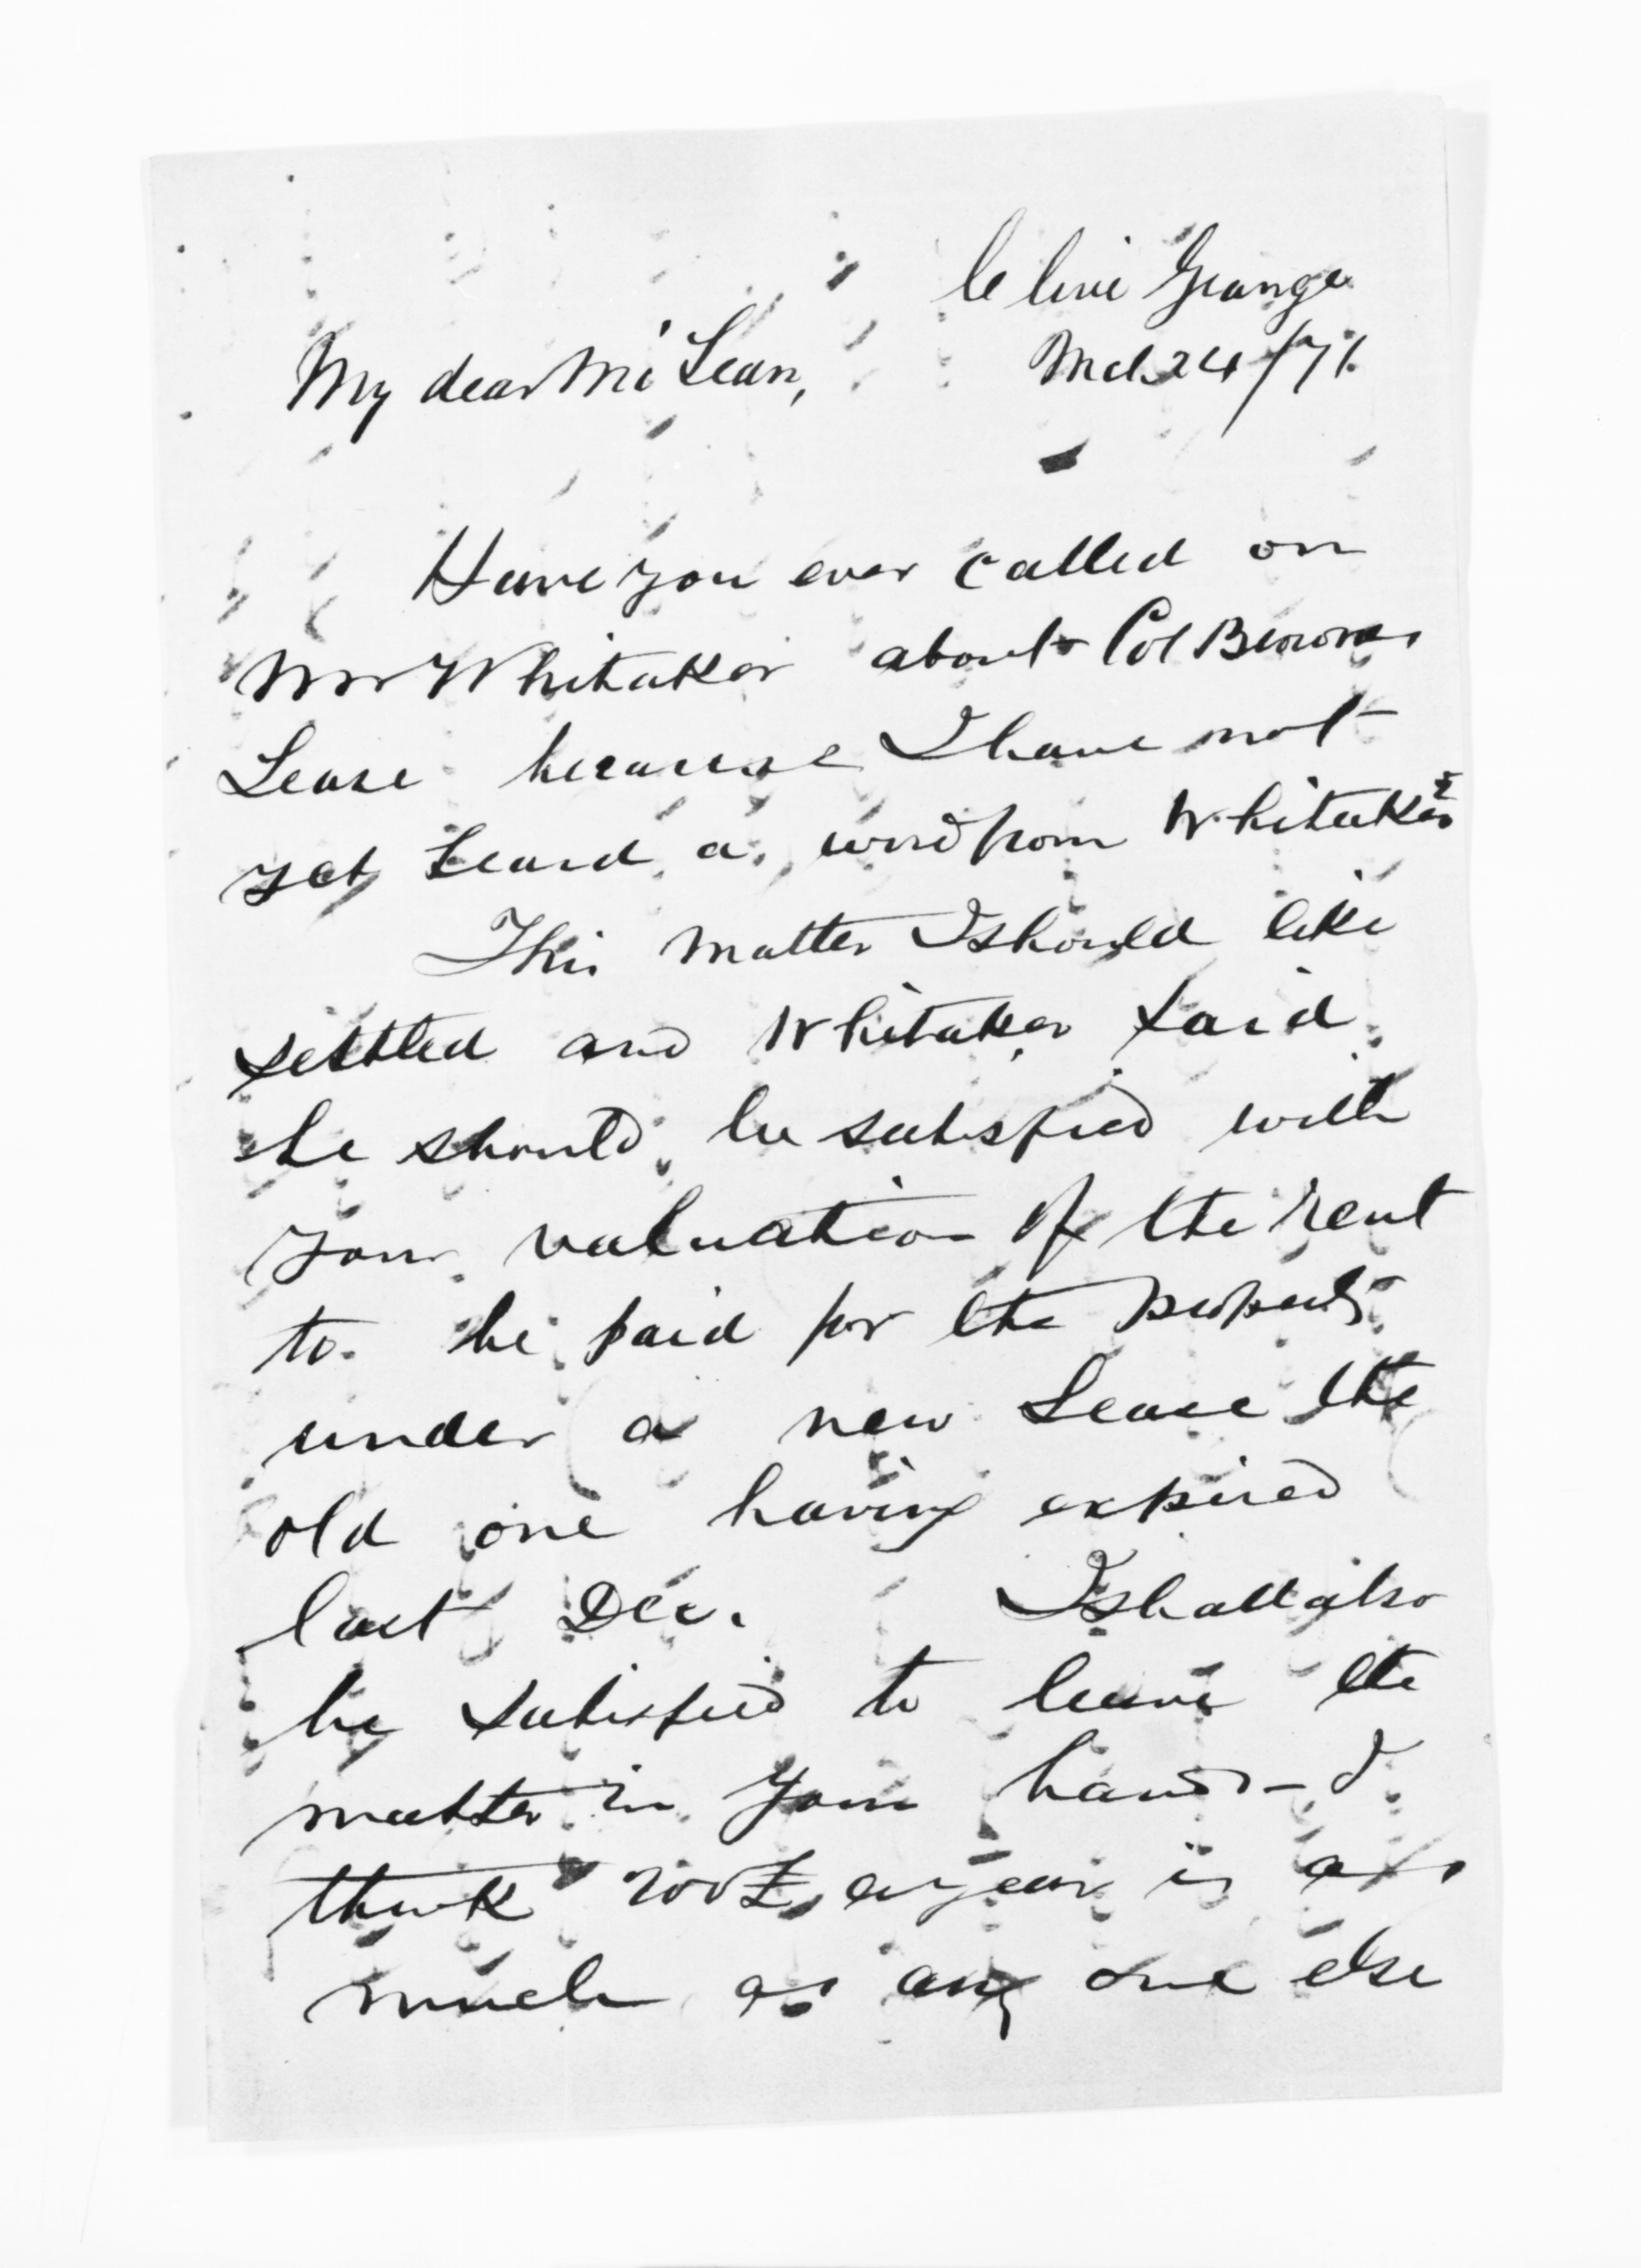 Clive Grange
Mch 24/71.
My dear McLean,
Have you ever called on
Mr Whitaker about Col Browns
Lease because I have not
yet heard a word from Whitaker?
This matter I should like
settled and Whitaker said
he should be satisfied with
your valuation of the rent
to be paid for the property
under a new Lease the
old one having expired
last Dec. I shall also
be satisfied to leave the
matter in your hands - I
think 200£ a year is as
much as any one else